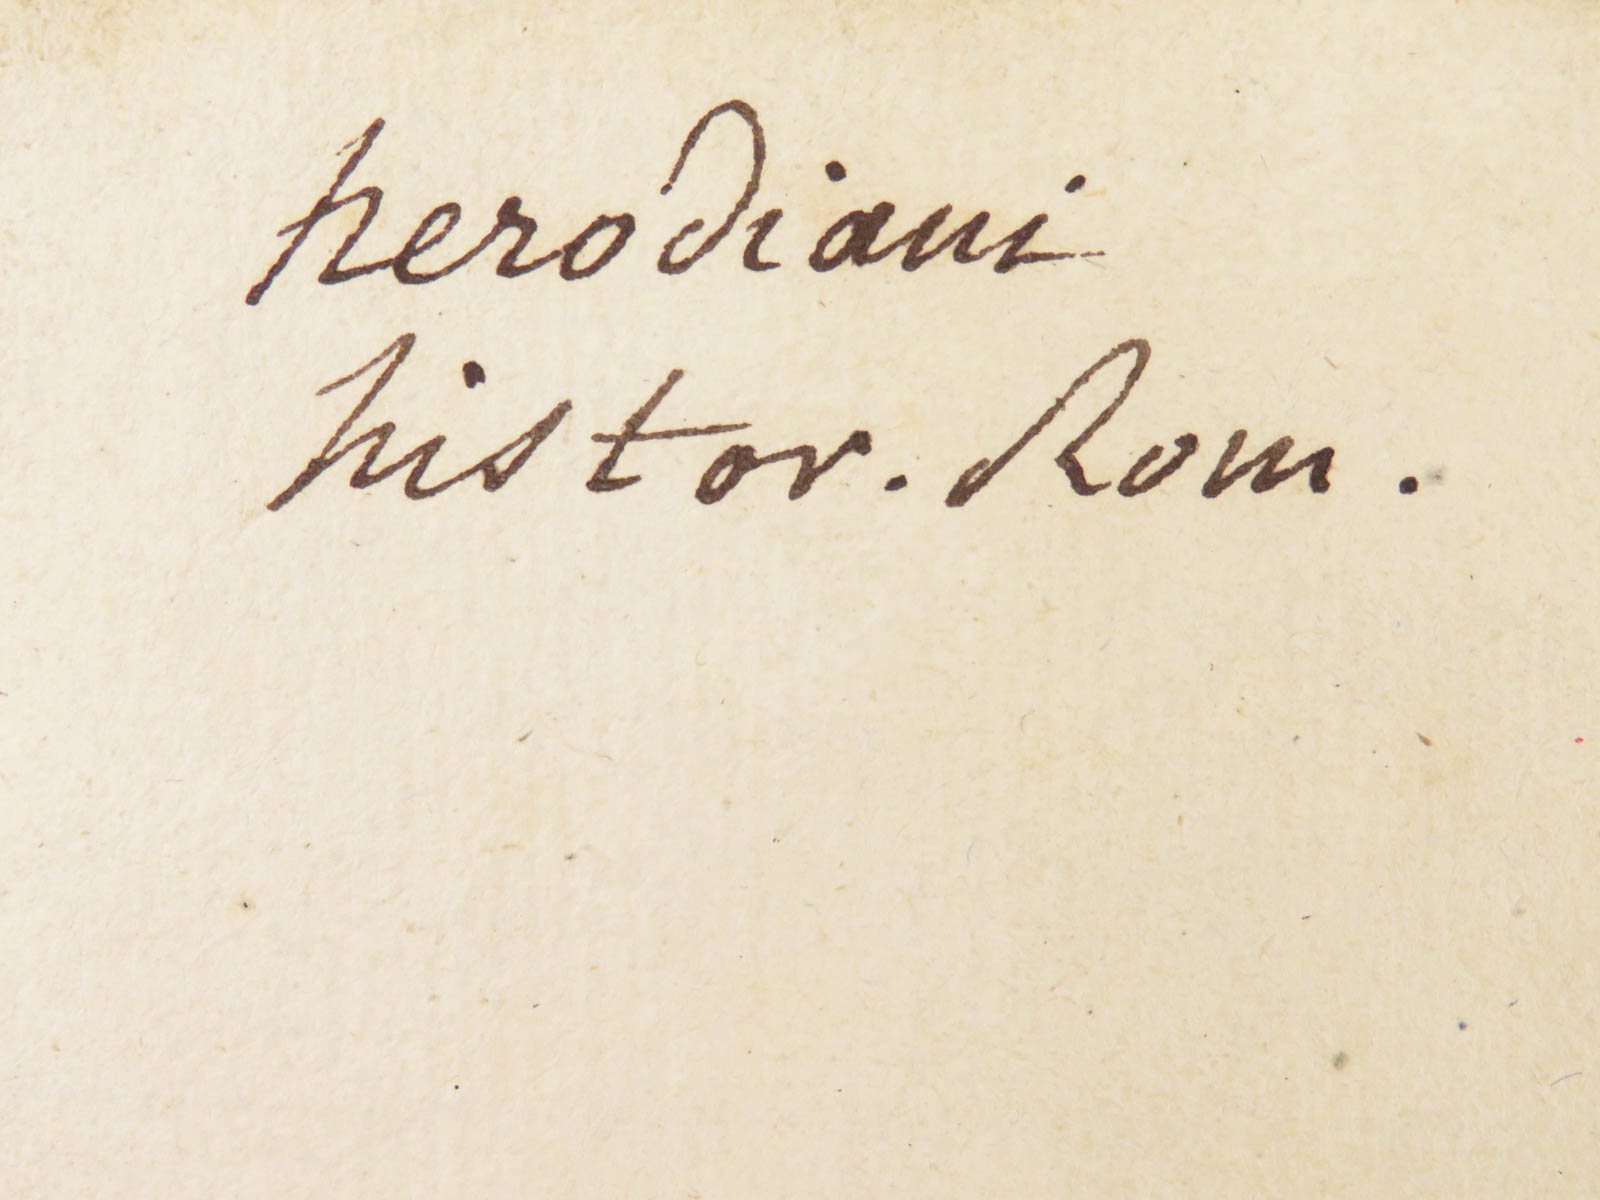 herodiani
histor. Rom.